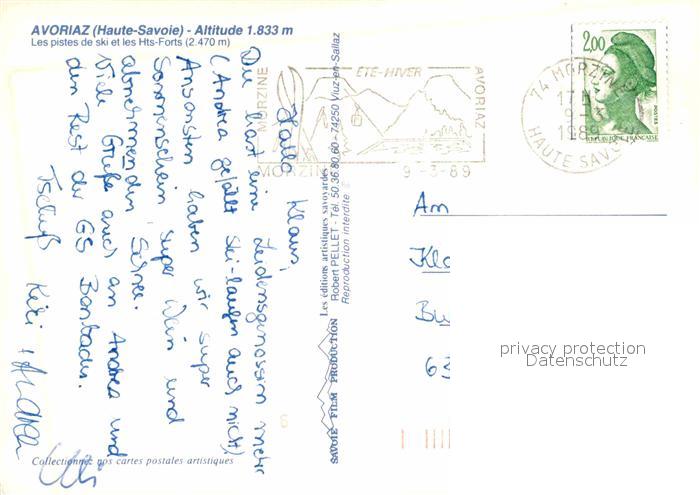 AVORIAZ (Haute-Savoie) - Altitude 1.833 m
Les pistes de ski et les Hts-Forts (2.470 m)
Hallo Klaus,
Du hast eine Leidensgenossin mehr
(Andrea gefällt Ski-laufen auch nicht)
Ansonsten haben wir super
Sonnenschein, super Wein und
abnehmenden Schnee.
Viele Grüße auch an Andrea und
den Rest der GS Bombadur.
Tschüß Kiki + Andrea
Collectionnez nos cartes postales artistiques
SAVOIE FILM PRODUCTION
Les éditions artistiques savoyardes
Robert PELLET - Tél. 50.36.80.60 - 74250 Viuz-en-Sallaz
Reproduction interdite
MORZINE
ETE-HIVER
AVORIAZ
MORZINE
9-3-89
74 MORZINE
17H
9-3
1989
HAUTE SAVOIE
2,00
REPUBLIQUE FRANÇAISE
POSTES
Am
Kla
6
privacy protection
Datenschutz